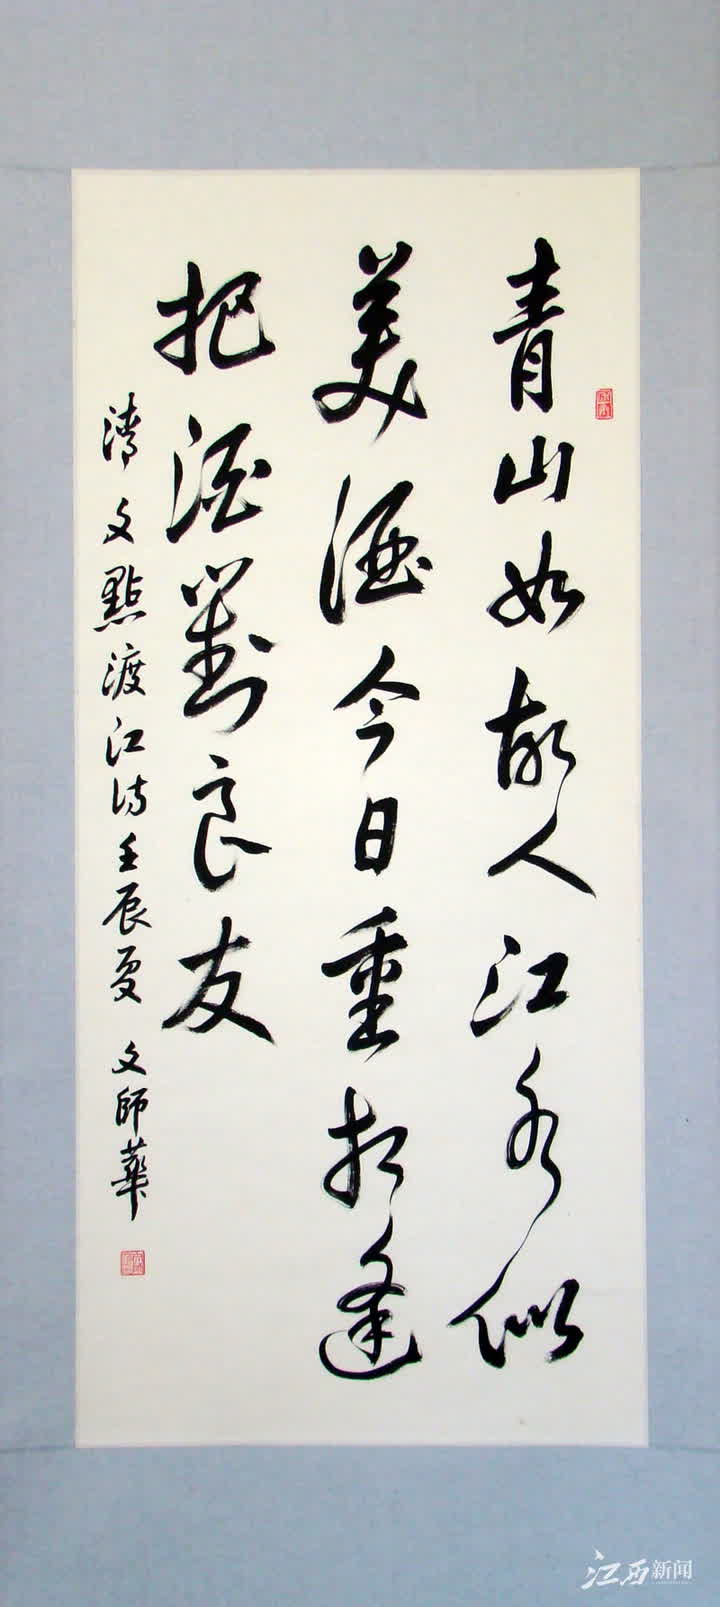 青山如故人江水似
美酒今日重相逢
把酒對良友
清文點渡江诗壬辰夏 文師華
江西新闻